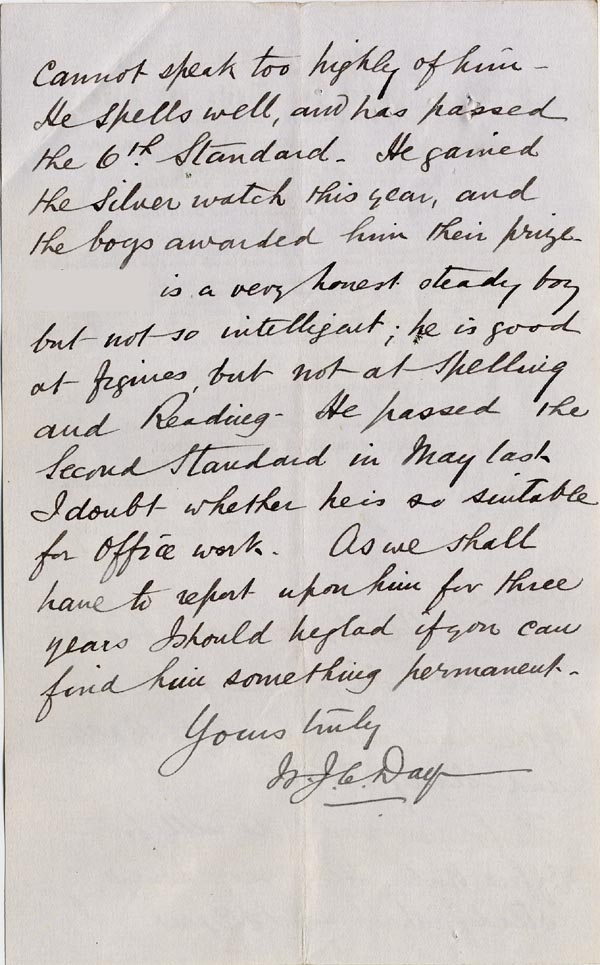 cannot speak too highly of him -
He spells well, and has passed
the 6th Standard - He gained
the silver watch this year, and
the boys awarded him their prize -
is a very honest steady boy
but not so intelligent; he is good
at figures, but not at Spelling
and Reading - He passed the
Second Standard in May last
I doubt whether he is so suitable
for Office work. As we shall
have to report upon him for three
years I should be glad if you can
find him something permanent -
Yours truly
J. C. Day